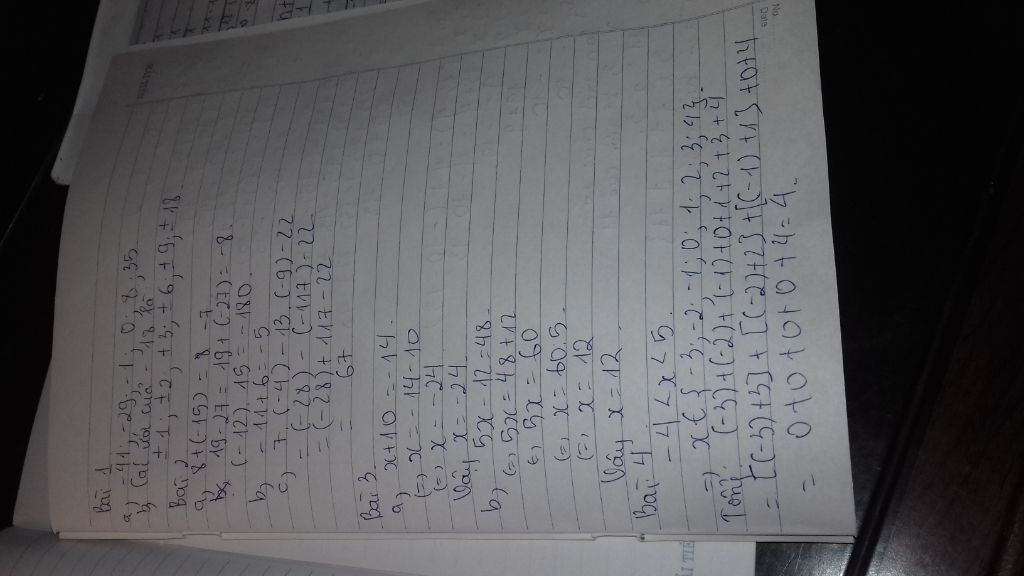 Bài 1
a) -41; -29; -1; 0; 8; 35
b) Các của -18 là:
± 1, ± 2, ± 3; ± 6; ± 9; ± 18.
Bài 2
a) 8 + (-15) = -7
19 - 27 = 19 + (-27) = -8.
(-12). 15 = -180.
b) -11 + 6 = -5
c) 7. (-4) - 13. (-9) - 22
= (-28) - (-117) - 22
= (-28) + 117 - 22
= 67
Bài 3
a) x + 10 = -14
(=) x = -14 - 10
(=) x = -24
Vậy x = -24
b) 5x - 12 = 48.
(=) 5x = 48 + 12
(=) 5x = 60
(=) x = 60:5.
(=) x = 12
Vậy x = 12.
Bài 4
-4 < x < 5.
=) x { -3; -2; -1; 0; 1; 2; 3; 4}
Tổng: (-3) + (-2) + (-1) + 0 + 1 + 2 + 3 + 4
= [(-3) + 3] + [(-2) + 2] + [(-1) + 1] + 0 + 4
= 0 + 0 + 0 + 0 + 4 = 4.
No.
Date